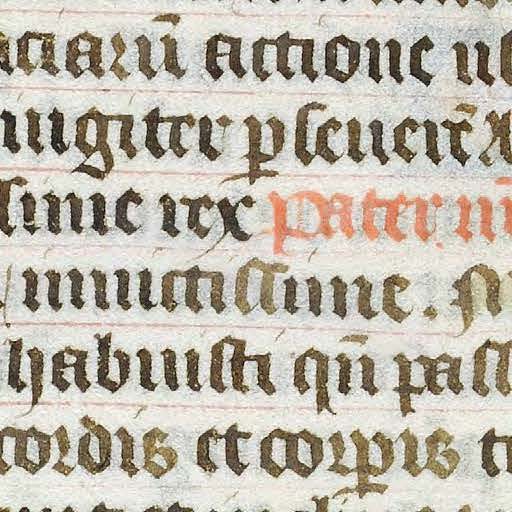 aciarū actione
iugiter ꝑseueret̄
sime rex Pater
inuictissime.
habuisti qn̄ pass
cordis et corꝑis